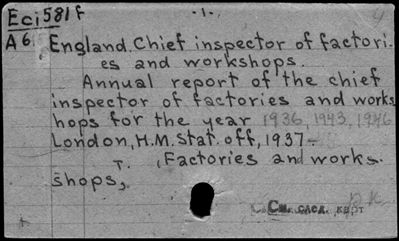 Eci581f -1-
A6 England. Chief inspector of factori-
es and workshops.
Annual report of the chief
inspector of factories and works
hops for the year 1936, 1943, 1946
London, H.M. Stat. off, 1937-
T. Factories and works.
shops,
См. след. карт